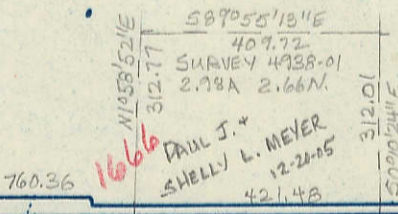 S89°55'13"E
409.72
SURVEY 4938-01
2.98A 2.66N.
N1°58'52"E
312.77
1666
PAUL J. &
SHELLY L. MEYER
12-20-05
421.48
312.01
S0°10'24"E
760.36